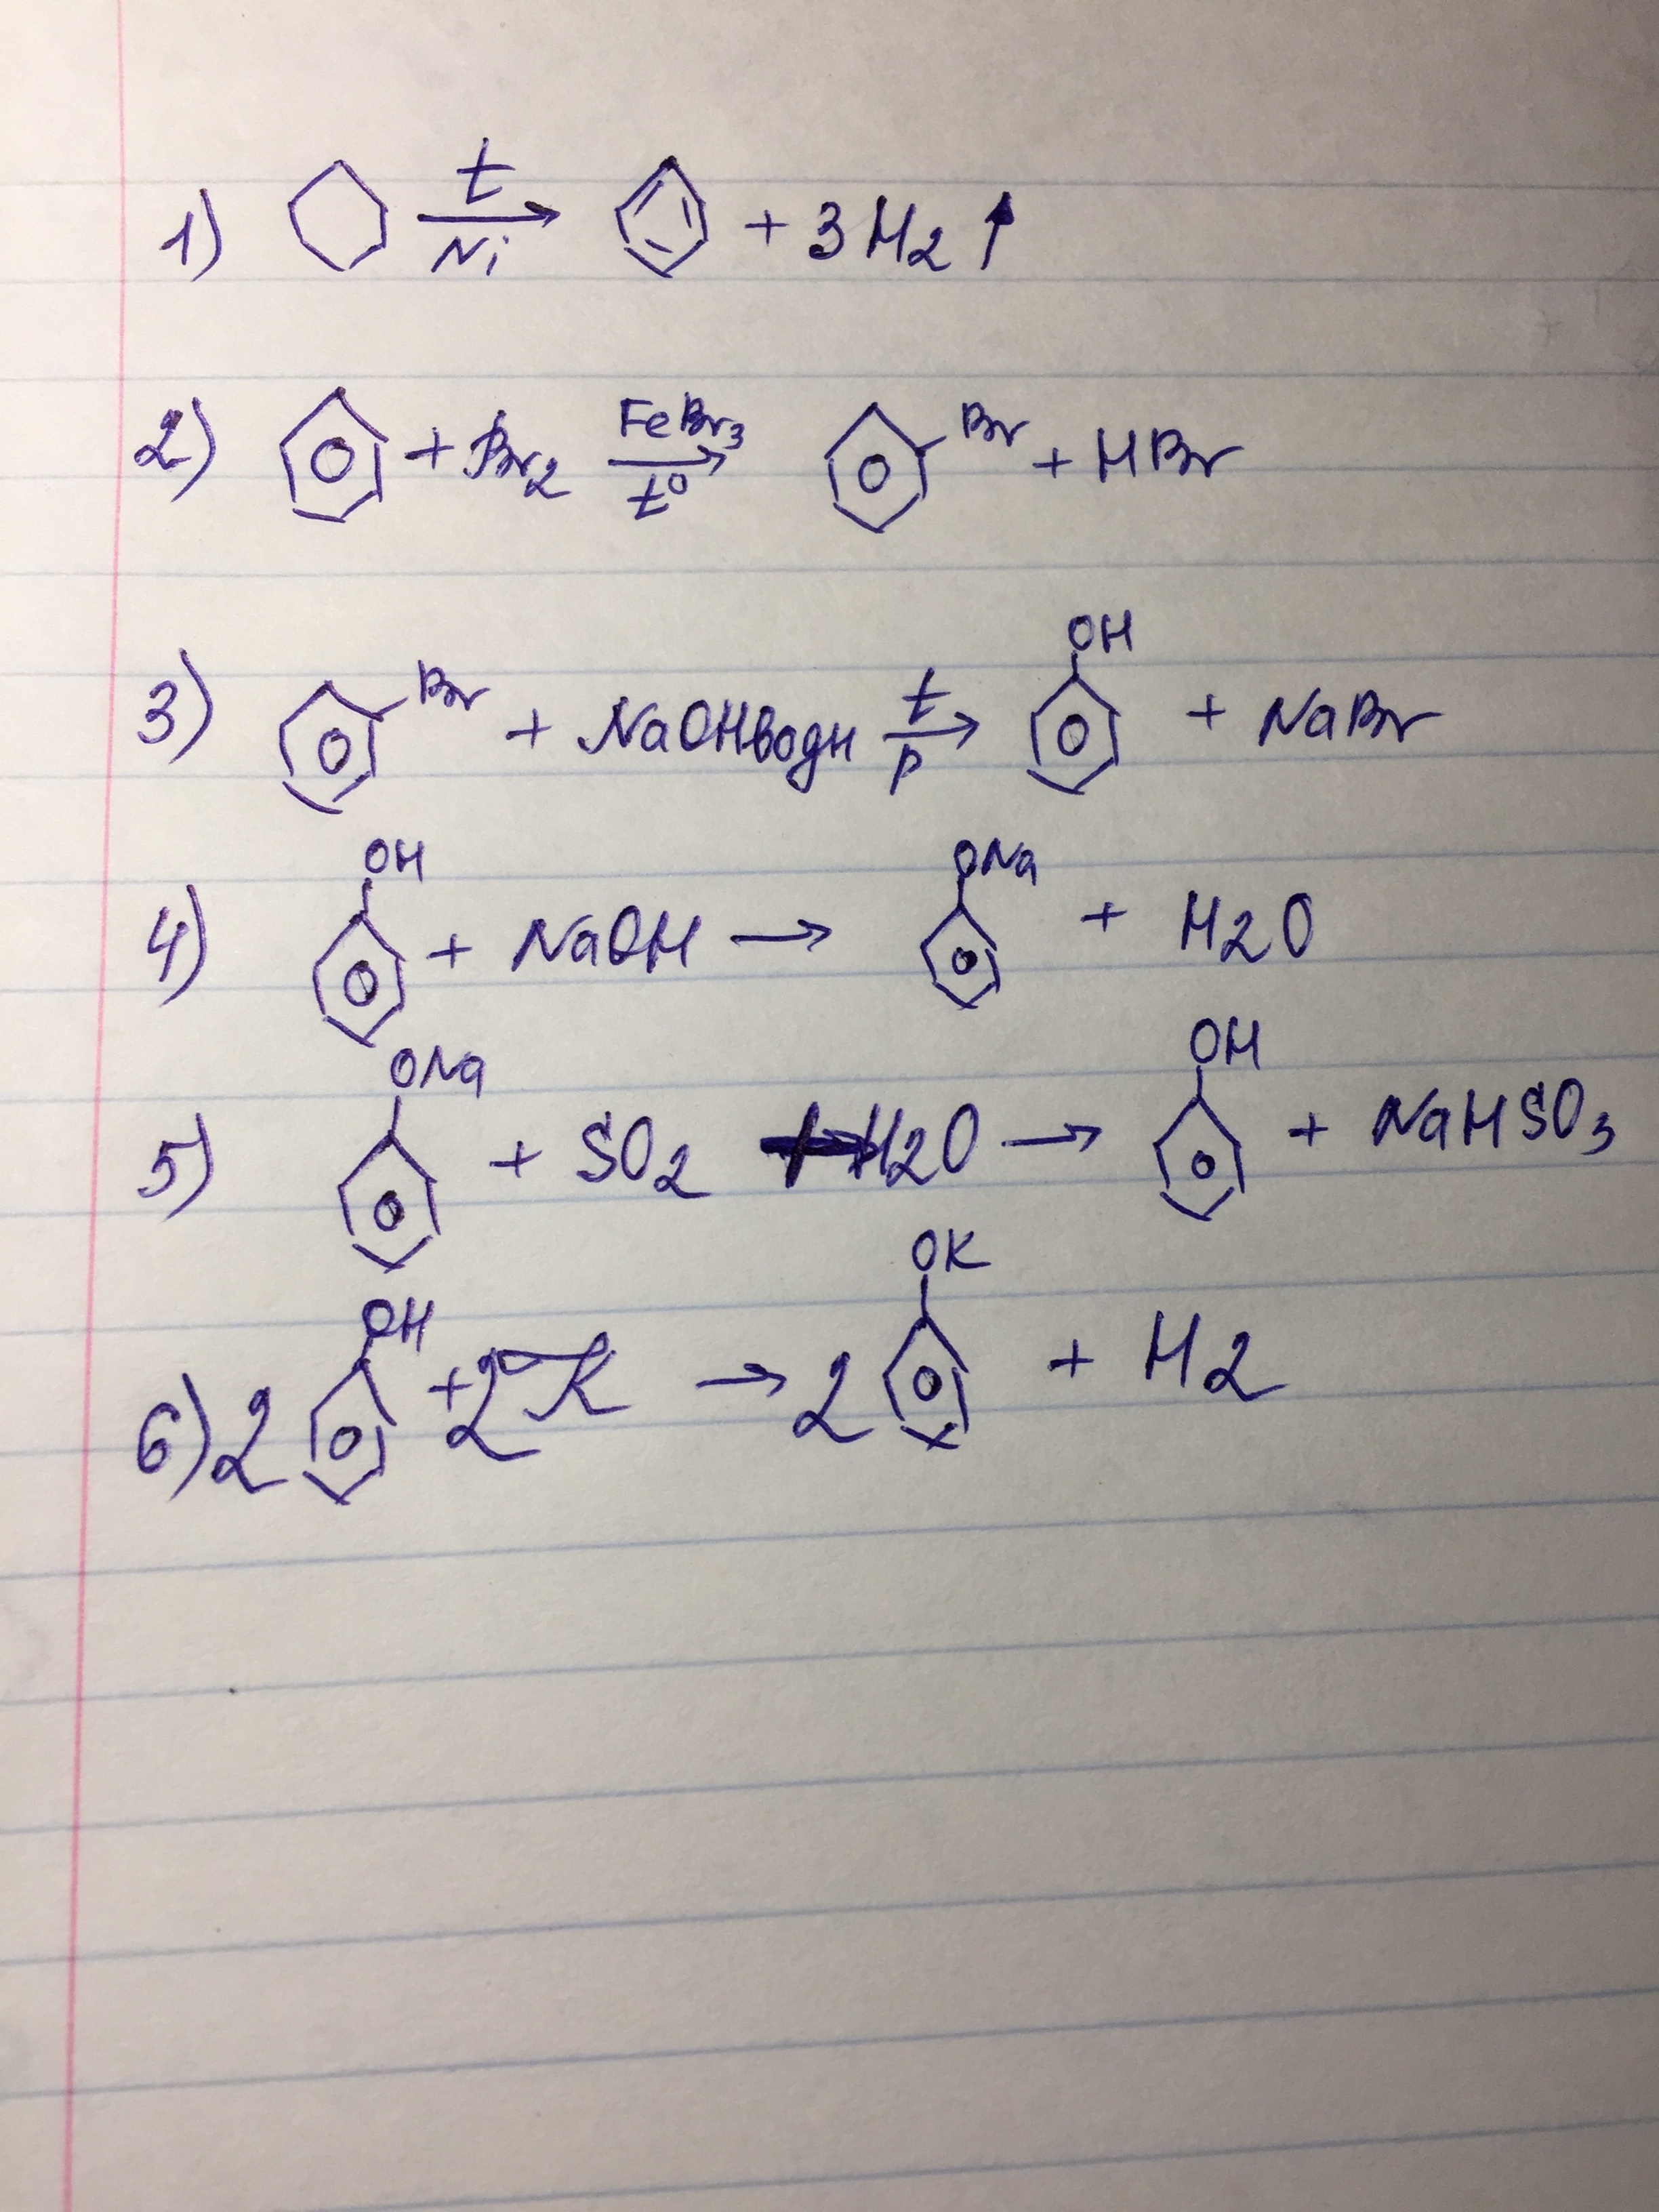 1) t Ni + 3H2↑
2) + Br2 FeBr3 → t° Br + HBr
3) Br + NaOHводн t → p OH + NaBr
4) OH + NaOH → ONa + H2O
5) ONa + SO2 + H2O → OH + NaHSO3
6) 2 OH + 2K → 2 OK + H2